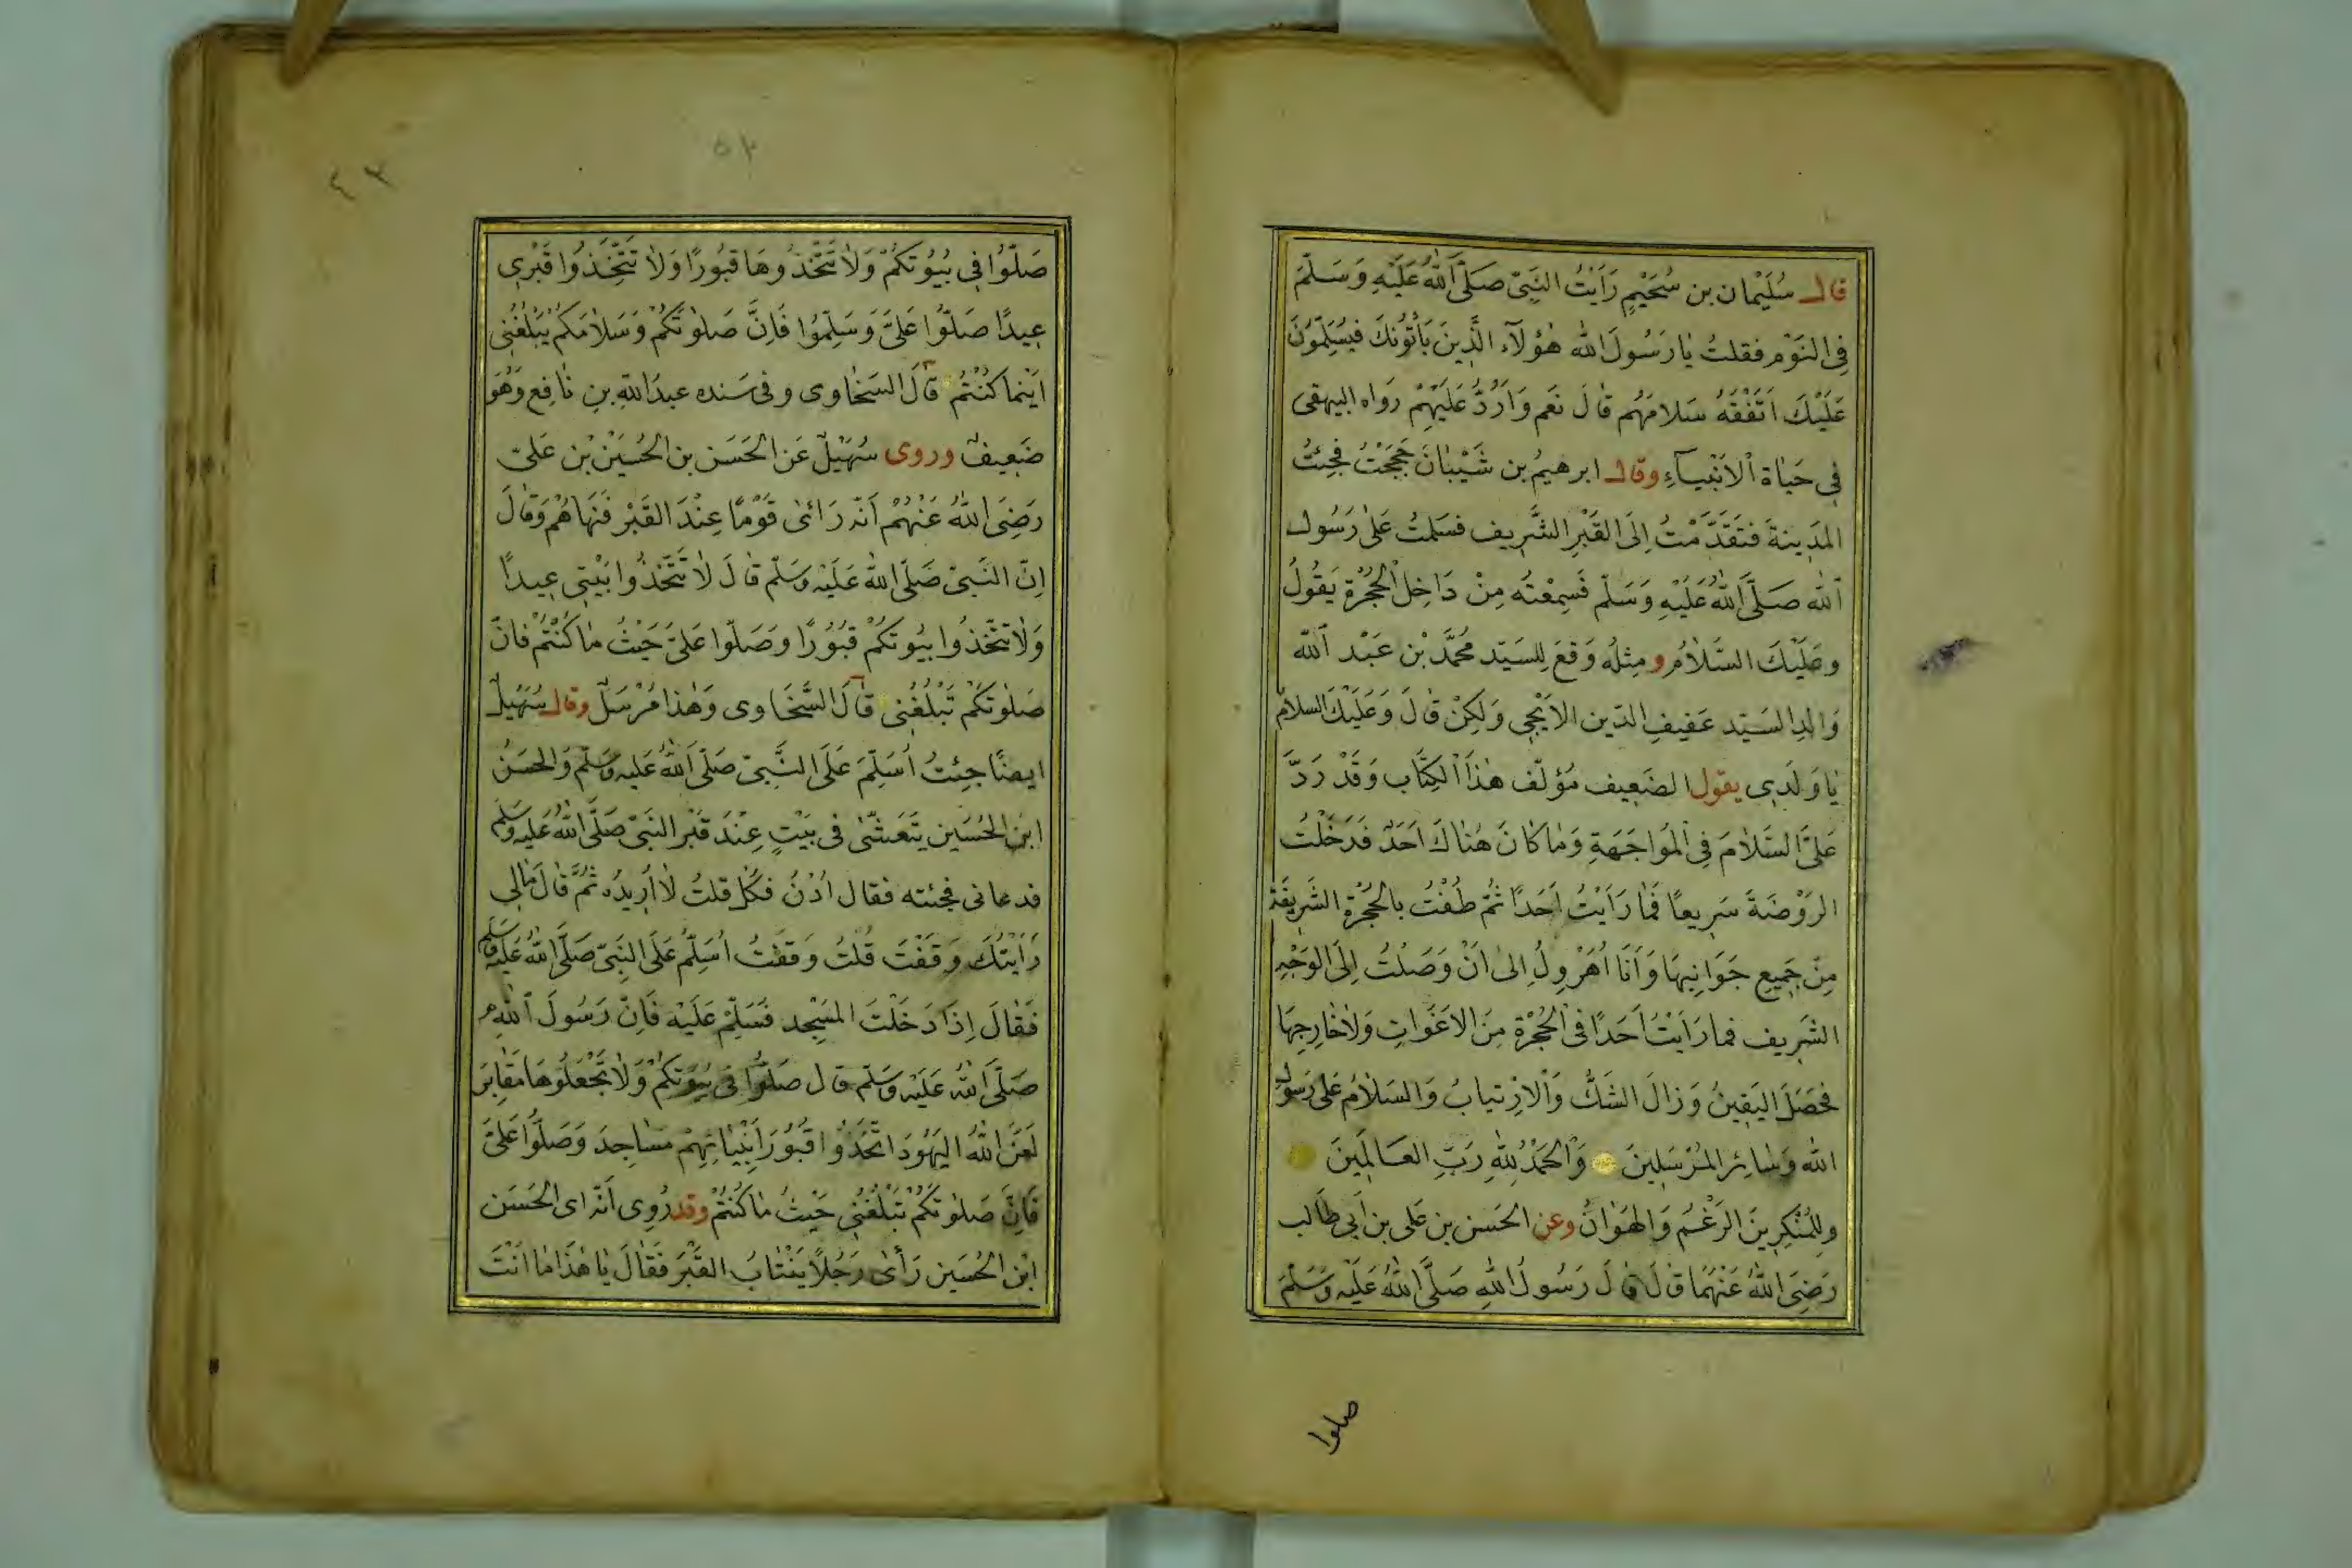 قال سُلَيْمان بن سُحَيْمٍ رَأَيْتُ النَّبِىّ صَلَّى اللّٰهُ عَلَيْهِ وَسَلَّمَ
فِى النَوْم فقلتُ يٰا رَسُولَ اللّٰه هٰؤلآءِ الَّذِينَ يَأْتُونَكَ فيُسَلِّمُونَ
عَلَيْكَ اَتَفْقَهُ سَلامَهُم قٰالَ نَعَم وَاَرُدُّ عَلَيْهِمْ رَوَاه البيهقى
فِى حَيٰاة الْاَنْبِيآءِ وقال ابرهيمُ بن شَيْبٰانَ حَجَجْتُ فجِئْتُ
المَدِينةَ فتَقَدَّمْتُ اِلَى القَبْرِ الشَّرِيف فسَلمتُ عَلىٰ رَسُول
اللّٰه صَلَّى اللّٰهُ عَلَيْهِ وَسَلّم فَسَمِعْتُه مِنْ دَاخِل الْحُجُرَة يَقُولُ
وعَلَيْكَ السَّلاٰمُ ومِثلُه وَقعَ لِلسَيّد مُحمَّد بْن عَبْد اللّٰه
وَالِد السَيّد عَفِيفِ الدّين الاَيْجِى وَلكِنْ قٰالَ وَعَلَيْكَ السلامُ
يٰا وَلَدِى يقول الضَعِيف مُؤلّف هٰذَا الْكِتَاب وَقَدْ رَدَّ
عَلىَّ السَّلاٰمَ فِى الْمُوَاجَهَةِ وَمٰا كٰانَ هُنٰاكَ اَحَدٌ فَدَخَلْتُ
الرَوْضَةَ سَرِيعًا فَمٰا رَاَيْتُ اَحَدًا ثُمّ طُفْتُ بالْحُجْرَة الشَرِيفَة
مِنْ جَمِيعِ جَوَانِبِهَا وَاَنَا اُهَرْوِلُ اِلىٰ اَنْ وَصَلْتُ اِلَى الوَجْهِ
الشَرِيف فمٰا رَاَيْتُ اَحَدًا فى الْحُجْرَة مِنَ الاَغَوَاتِ وَلاٰ خٰارِجِهَا
فحَصَلَ اليَقِينُ وَزالَ الشَكُّ وَالْاِرْتيابُ وَالسَلاٰمُ عَلى رَسُول
اللّٰه وَسٰائِر المُرْسَلِينَ وَالْحَمْدُ لِلّٰهِ رَبِّ العَالَمِينَ
ولِلْمُنْكِرِينَ الرَغْمُ وَالهَوَانُ وعن الحَسَن بن عَلى بن اَبِى طَالِب
رَضِىَ اللّٰهُ عَنْهُمَا قٰالَ قٰالَ رَسُولُ اللّٰهِ صَلَّى اللّٰهُ عَلَيْه وَسَلَّمَ
صلوا
صَلّوُا فِى بُيُوتِكُمْ وَلاٰ تَتَّخِذُوهَا قُبُورًا وَلاٰ تَتَّخِذُوا قَبْرِى
عِيدًا صَلّوُا عَلىَّ وَسَلِّمُوا فَاِنَّ صَلوٰتَكُمْ وَسَلاٰمَكُمْ يَبْلُغُنِى
اَيْنَما كنْتُمْ قٰالَ السَخٰاوى وفى سَنده عبدُ اللّٰهِ بن نٰافِع وَهُوَ
ضَعِيفٌ وروى سُهَيْلٌ عَنِ الْحَسَن بن الْحُسَيْن بْن عَلىّ
رَضِىَ اللّٰهُ عَنْهُمْ اَنّه رَائىٰ قَوْمًا عِنْدَ القَبْر فنَهَاهُمْ وَقٰالَ
اِنّ النَبِىّ صَلّى اللّٰه عَلَيْه وَسَلّم قٰالَ لاٰ تَتَّخِذُوا بَيْتِى عِيدًا
وَلاٰ تتَّخِذُوا بُيُوتكُمْ قُبُوُرًا وَصَلّوا عَلىَّ حَيْثُ مٰا كُنْتُمْ فانّ
صَلوٰتَكُمْ تَبْلُغُنِى قٰالَ السَّخَاوى وَهٰذا مُرْسَلٌ وقال سُهَيْلٌ
ايضًا جِئتُ اُسَلِّمَ عَلَى النَّبِىّ صَلّى اللّٰهُ عَليه وَسَلّم وَالحَسَنُ
ابنُ الحُسَين يَتَعَشّىٰ فى بَيْتٍ عِنْدَ قَبْر النَبِىّ صَلَّى اللّٰهُ عَليْه وَسَلّم
فدعانى فجئته فقال اُدْنُ فكُل قلتُ لاٰ اُرِيدُه ثُمَّ قٰالَ مٰالِى
رَاَيْتُكَ وَقَفْتَ قُلتُ وَقَفْتُ اُسَلِّمُ عَلَى النَبِىّ صَلَّى اللّٰهُ عَلَيْه وَسَلّم
فَقٰالَ اِذَا دَخَلْتَ المَسْجِد فَسَلِّمْ عَلَيْه فَاِنّ رَسُولَ اللّٰهِ
صَلَّى اللّٰهُ عَلَيْه وَسَلّم قٰال صَلّوُا فى بُيُوتِكُمْ وَلاٰ تَجْعَلُوهَا مَقٰابِرَ
لَعَنَ اللّٰهُ اليَهُودَ اتَّخَذُوْا قُبُوُرَ اَنْبِيٰائِهِمْ مسَاجِدَ وَصَلّوُا عَلىَّ
فَاِنَّ صَلوٰتَكُمْ تَبْلُغُنِى حَيْثُ مٰا كُنْتُمْ وقد رُوِى اَنّه اى الحَسَن
ابْن الْحُسَين رَأىٰ رَجُلاً يَنْتٰابُ القَبْرَ فَقٰالَ يٰا هٰذَا مٰا اَنْتَ